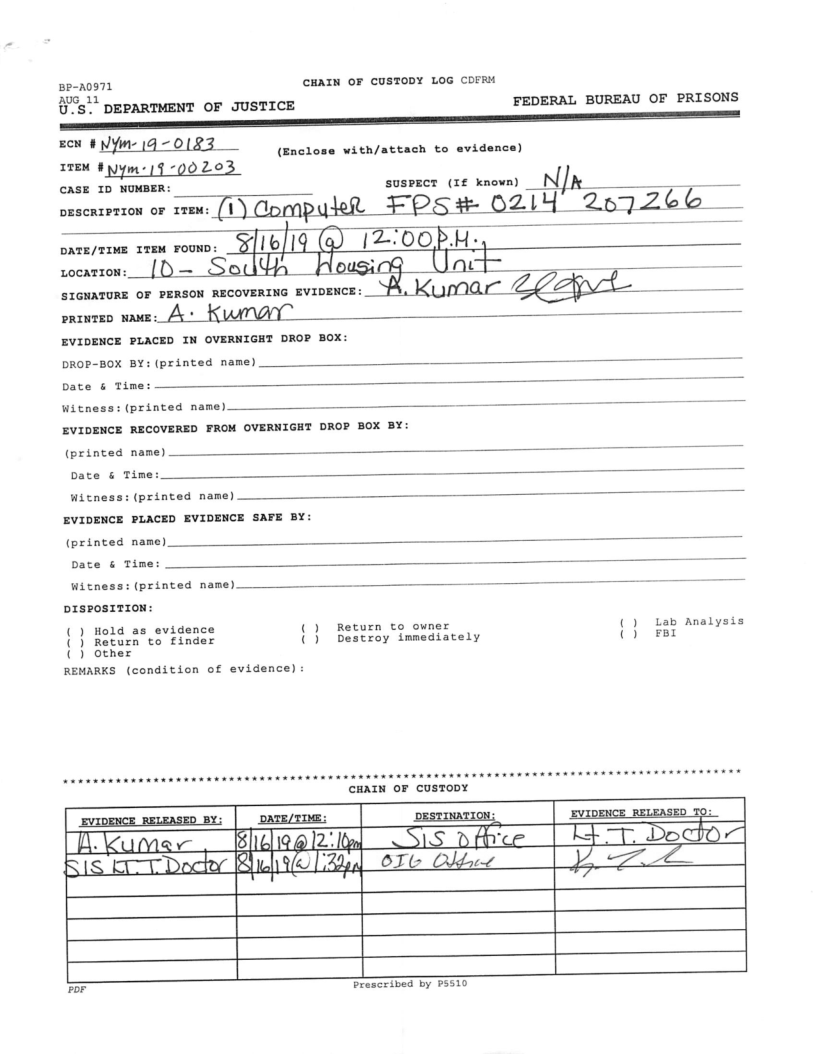 CHAIN OF CUSTODY LOG CDFRM
BP-A0971
AUG 11
U.S. DEPARTMENT OF JUSTICE FEDERAL BUREAU OF PRISONS
ECN # NYM-19-0183 (Enclose with/attach to evidence)
ITEM # NYM-19-00203
CASE ID NUMBER: SUSPECT (If known) N/A
DESCRIPTION OF ITEM: (1) Computer FPS# 0214 207266
DATE/TIME ITEM FOUND: 8/16/19 @ 12:00 P.M.
LOCATION: 10-South Housing Unit
SIGNATURE OF PERSON RECOVERING EVIDENCE: A. Kumar
PRINTED NAME: A. Kumar
EVIDENCE PLACED IN OVERNIGHT DROP BOX:
DROP-BOX BY:(printed name)
Date & Time:
Witness:(printed name)
EVIDENCE RECOVERED FROM OVERNIGHT DROP BOX BY:
(printed name)
Date & Time:
Witness:(printed name)
EVIDENCE PLACED EVIDENCE SAFE BY:
(printed name)
Date & Time:
Witness:(printed name)
DISPOSITION:
( ) Hold as evidence ( ) Return to owner ( ) Lab Analysis
( ) Return to finder ( ) Destroy immediately ( ) FBI
( ) Other
REMARKS (condition of evidence):
CHAIN OF CUSTODY
EVIDENCE RELEASED BY: DATE/TIME: DESTINATION: EVIDENCE RELEASED TO:
A. Kumar 8/16/19 @ 12:10pm SIS Office Lt. T. Doctor
SIS LT. T. Doctor 8/16/19 @ 1:32pm OIG Office
PDF Prescribed by P5510